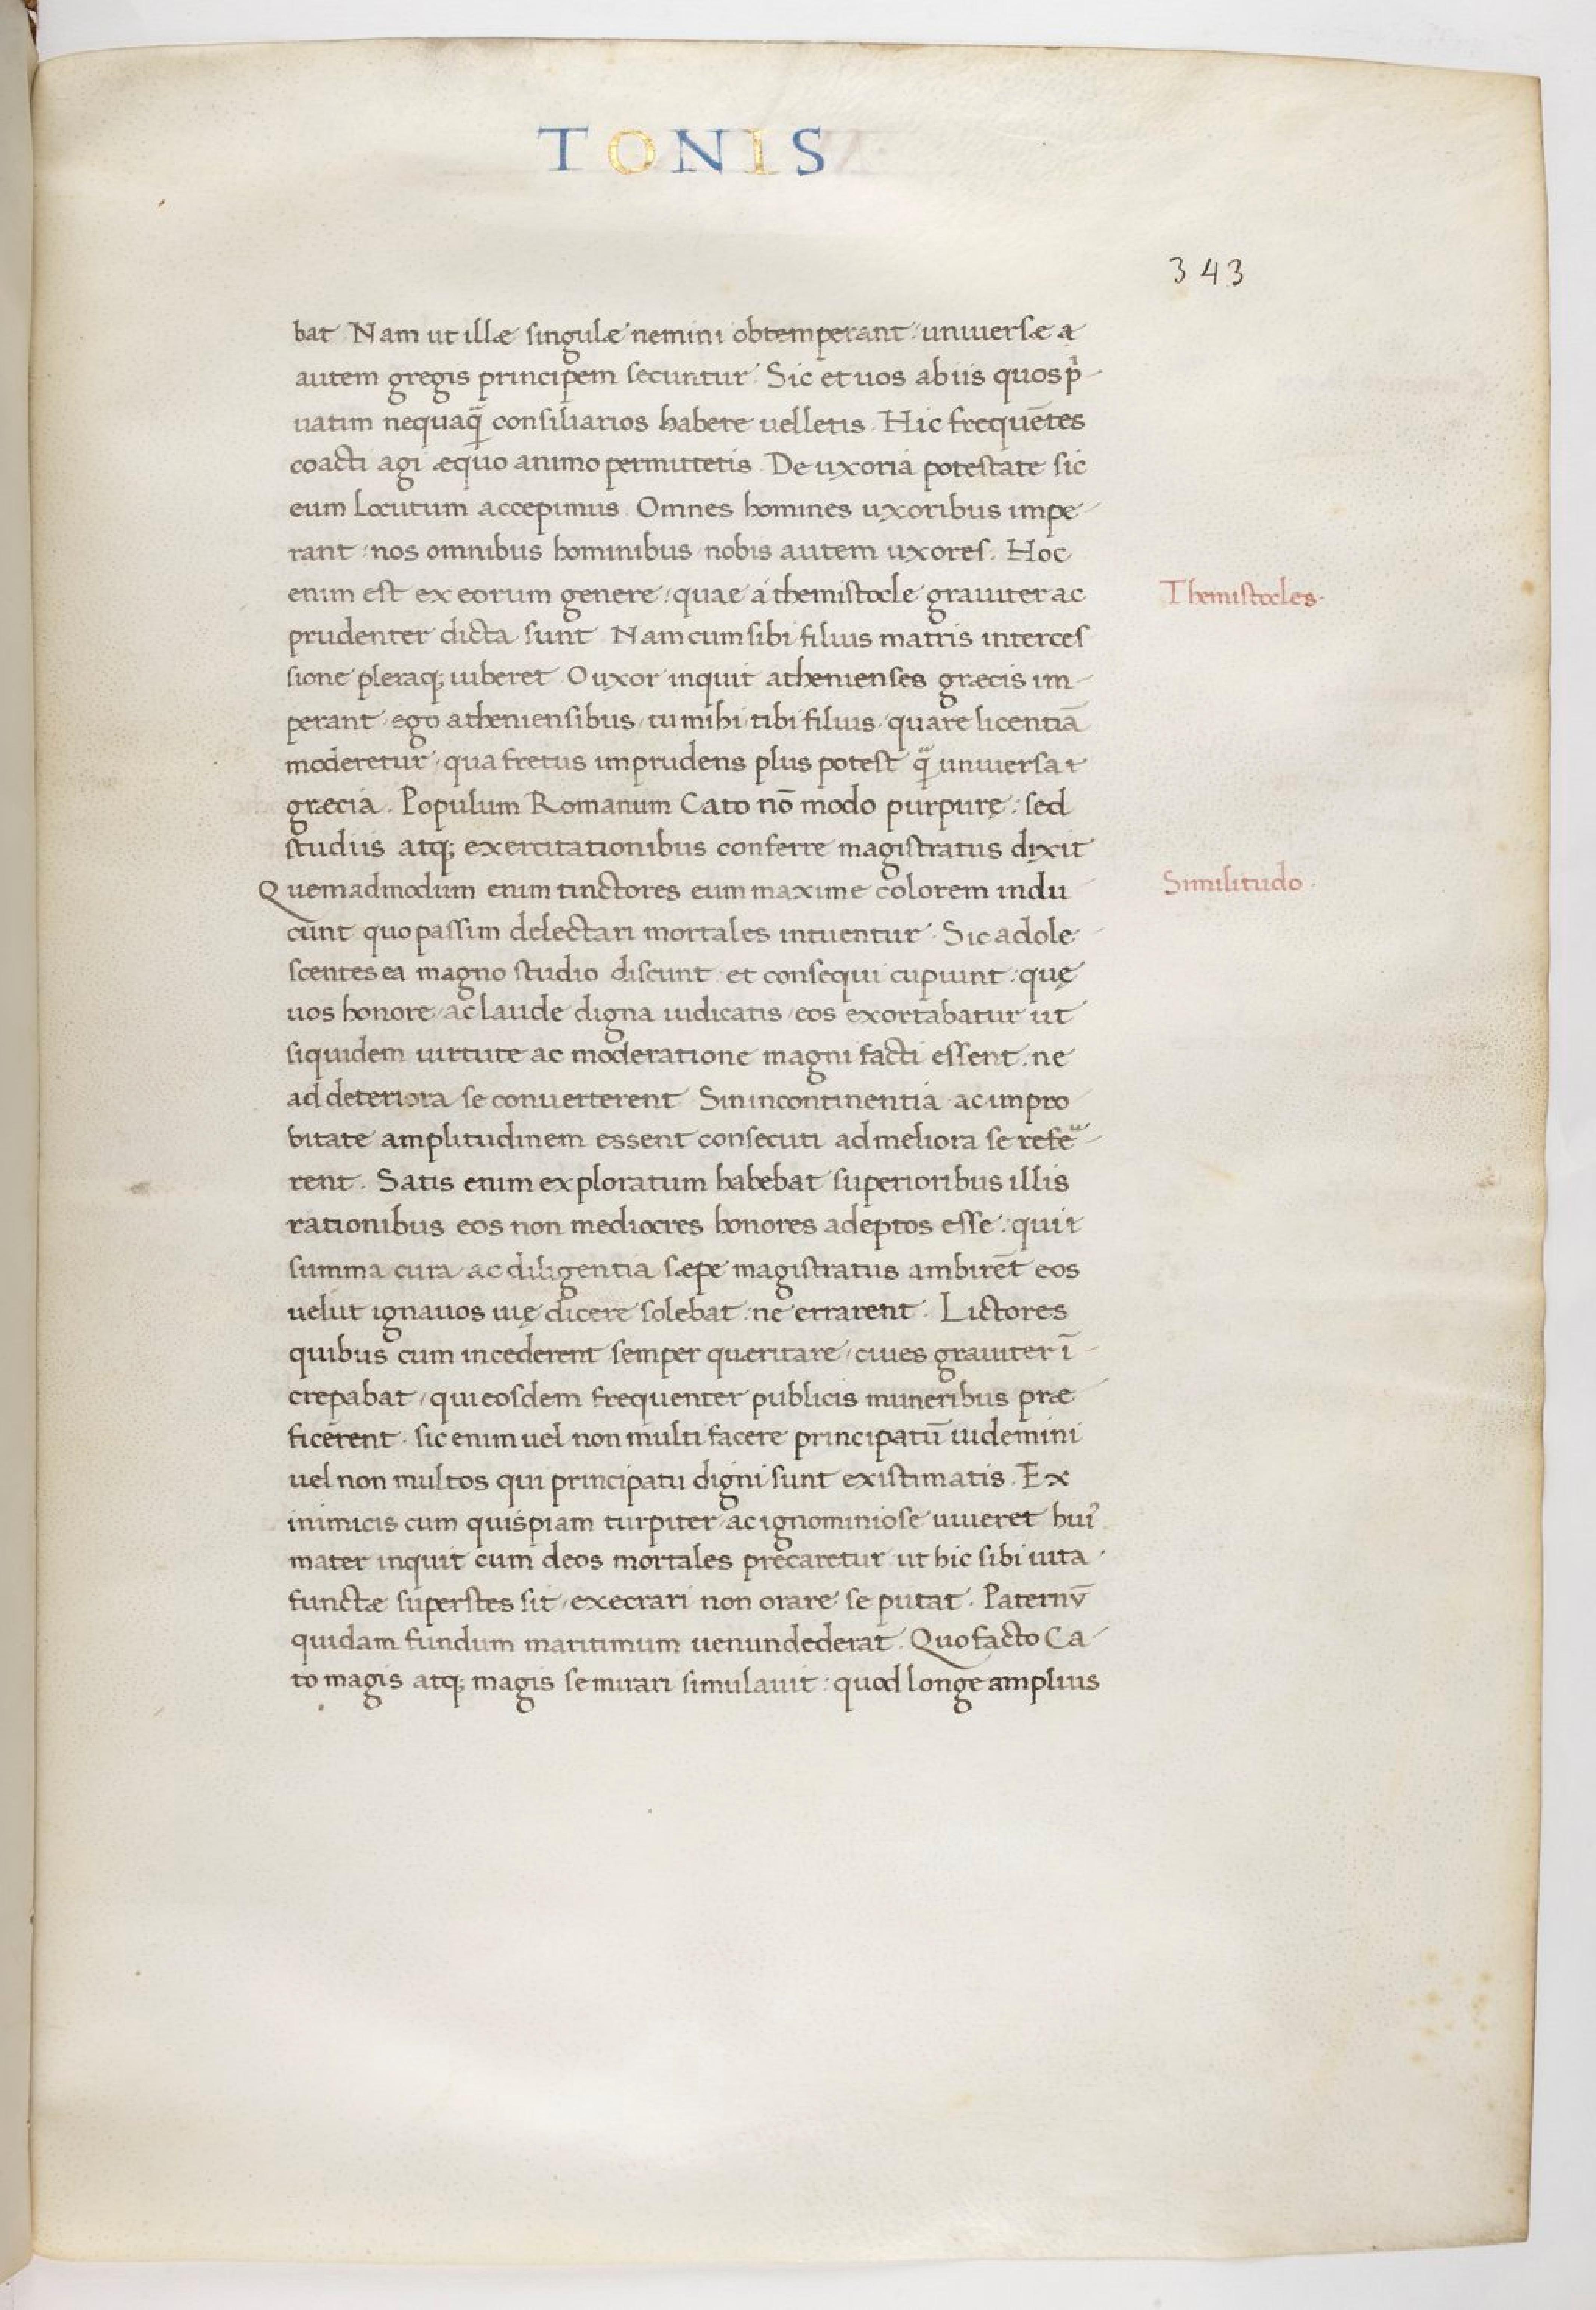 TONIS
343
bat Nam ut illæ singulæ nemini obtemperant: uniuersæ a
autem gregis principem secuntur. Sic et uos ab iis quos p̃
uatim nequaq̃ consiliarios habere uelletis. Hic frequẽtes
coacti agi æquo animo permittetis. De uxoria potestate sic
eum locutum accepimus. Omnes homines uxoribus impe
rant: nos omnibus hominibus nobis autem uxores. Hoc
enim est ex eorum genere: quae á themistocle grauiter ac
Themistocles.
prudenter dicta sunt. Nam cum sibi filius matris interces
sione pleraq; iuberet O uxor inquit athenienses græcis im
perant, ego atheniensibus, tu mihi, tibi filius. quare licentiã
moderetur, qua fretus imprudens plus potest q̃ uniuersa t
græcia. Populum Romanum Cato nõ modo purpurę: sed
studiis atq; exercitationibus conferre magistratus dixit
Quemadmodum enim tinctores eum maxime colorem indu
Similitudo.
cunt quo passim delectari mortales intuentur. Sic adole
scentes ea magno studio discunt et consequi cupiunt: quę
uos honore, ac laude digna iudicatis, eos exortabatur ut
siquidem uirtute ac moderatione magni facti essent, ne
ad deteriora se conuerterent Sin incontinentia ac impro
bitate amplitudinem essent consecuti ad meliora se refe
rent. Satis enim exploratum habebat superioribus illis
rationibus eos non mediocres honores adeptos esse: qui t
summa cura ac diligentia sæpe magistratus ambirẽt eos
uelut ignauos uię dicere solebat: ne errarent. Lictores
quibus cum incederent semper quæritare, ciues grauiter ĩ
crepabat, qui eosdem frequenter publicis muneribus præ
ficerent. sic enim uel non multi facere principatũ uidemini
uel non multos qui principatu digni sunt existimatis. Ex
inimicis cum quispiam turpiter, ac ignominiose uiueret huiꝰ
mater inquit cum deos mortales precaretur ut hic sibi uita
functæ superstes sit, execrari non orare se putat. Paternũ
quidam fundum maritimum uenundederat. Quo facto Ca
to magis atq; magis se mirari simulauit: quod longe amplius